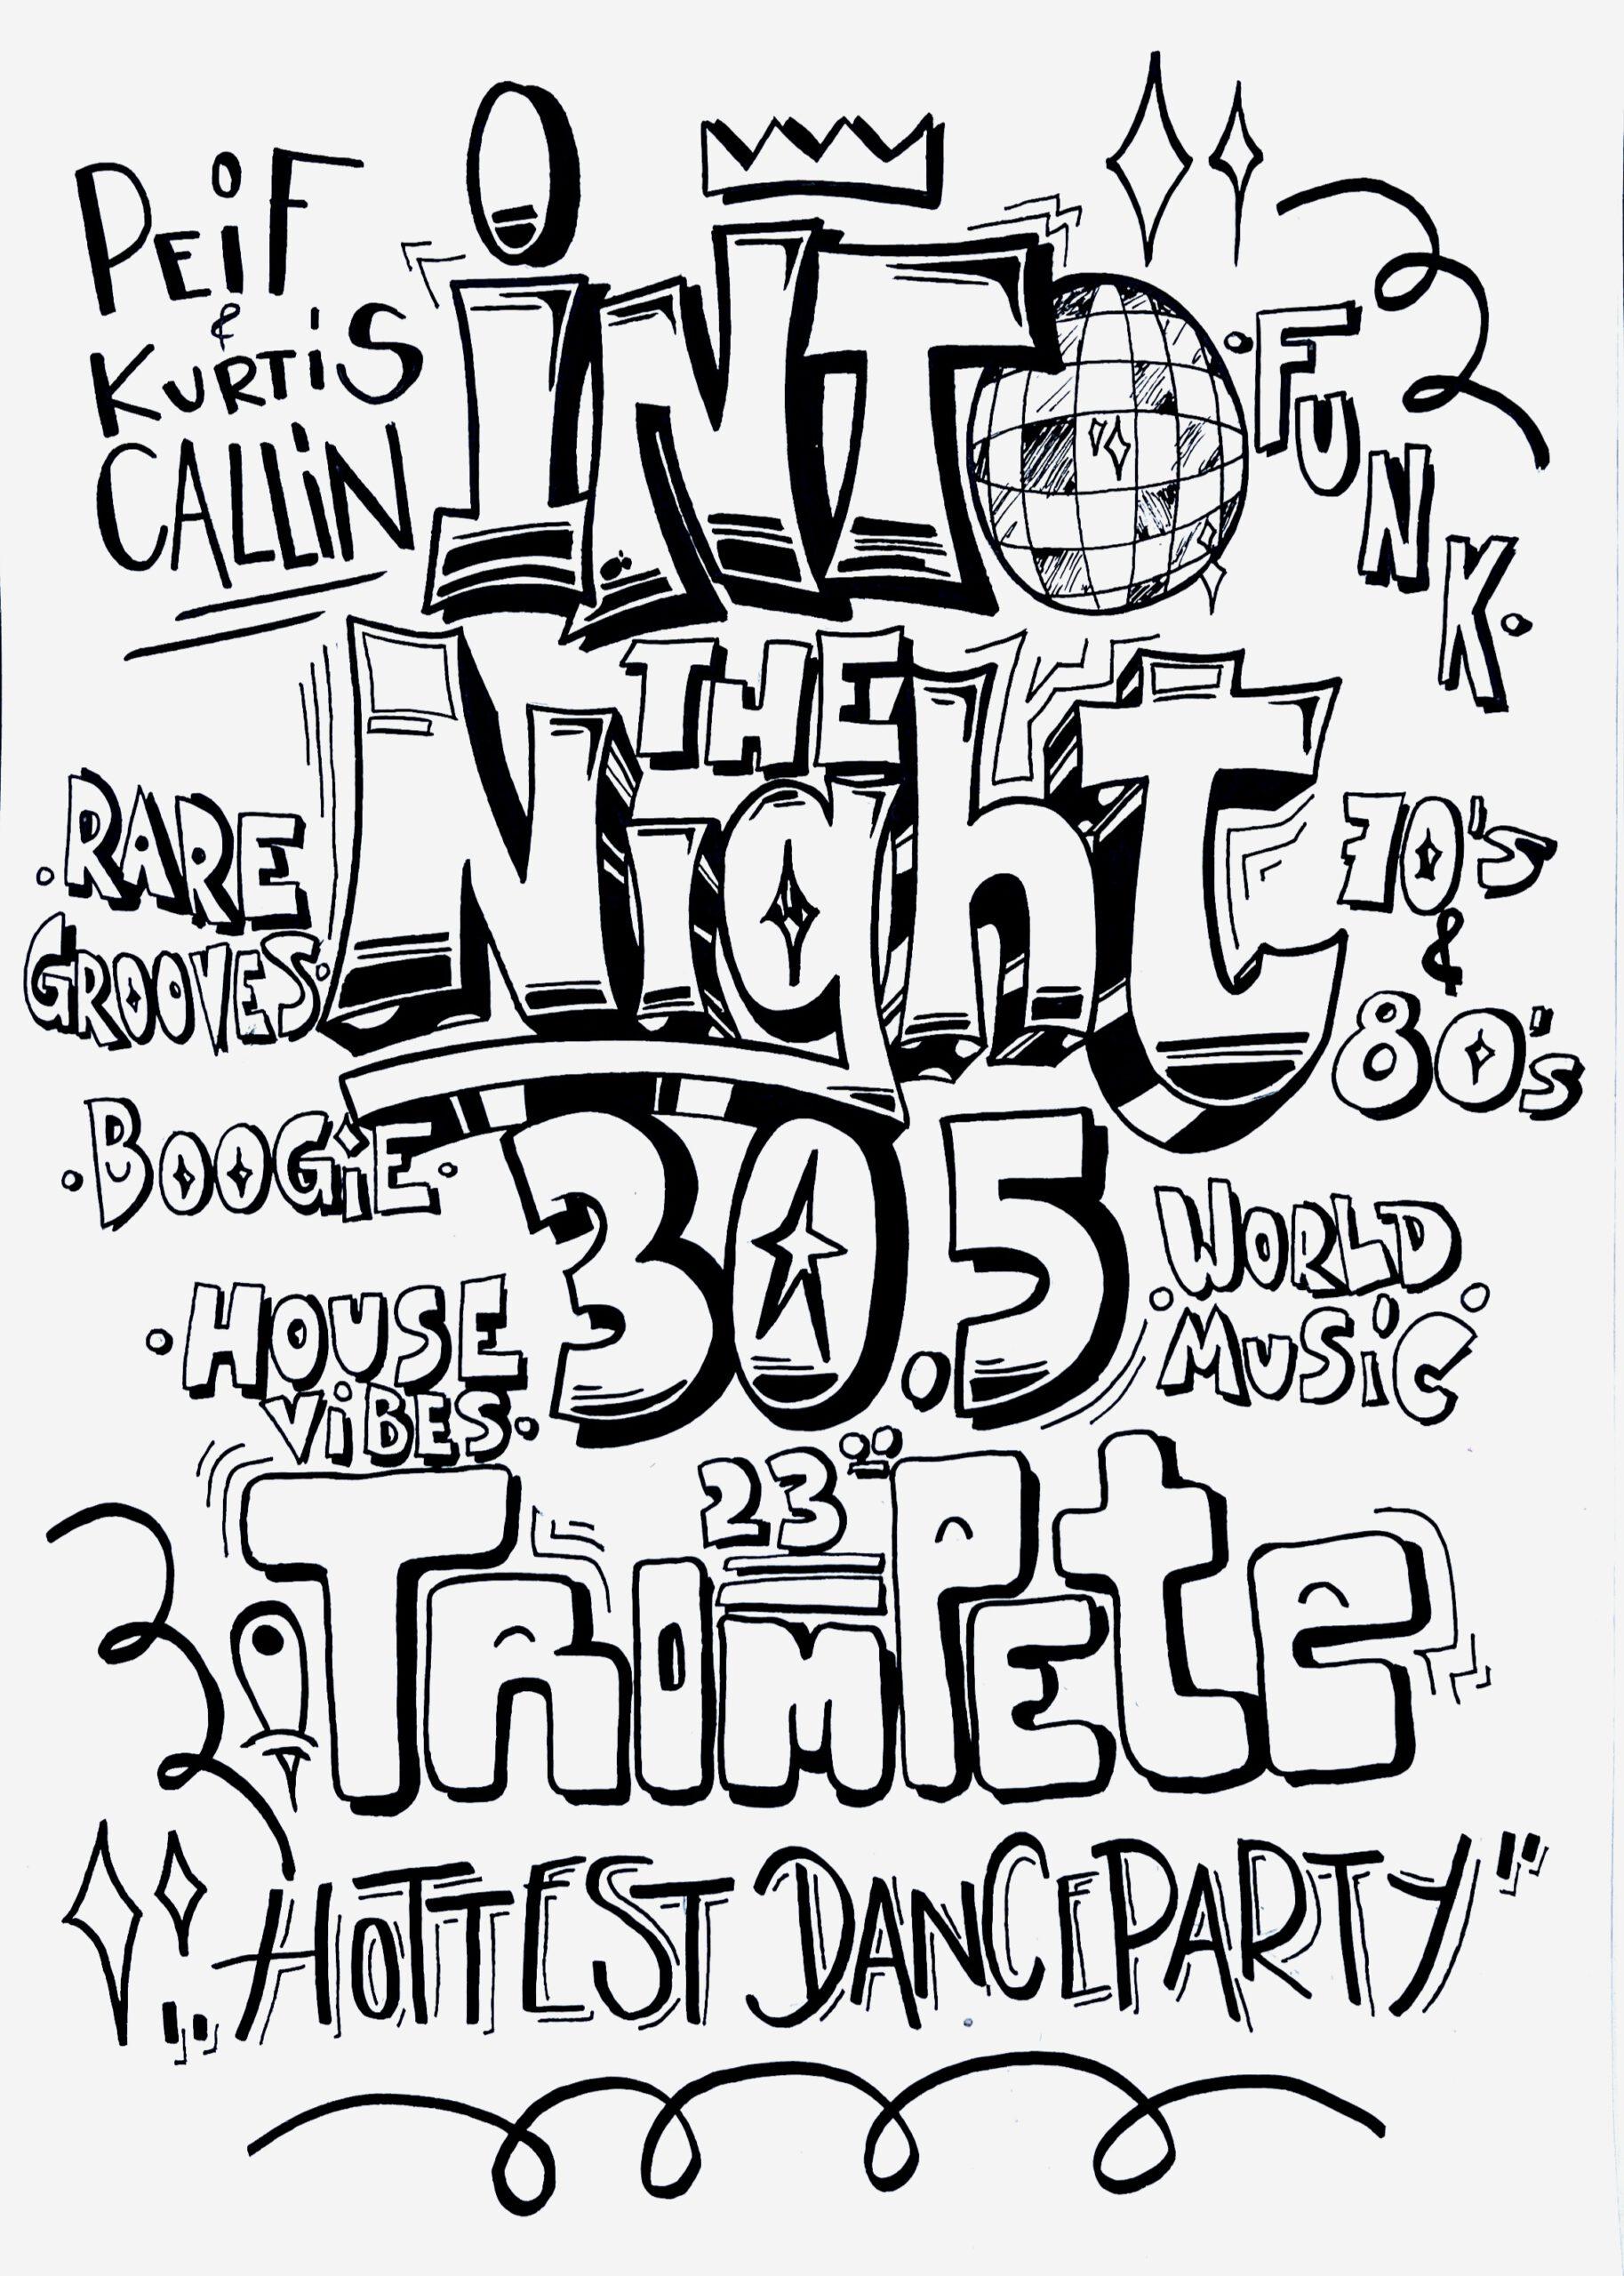 PEiF
&
KURTiS
CALLiN
iNTO
THE
NigHT
• FUNK •
• RARE
GROOVES •
70's
&
80's
• BOOGiE •
30.5
• HOUSE
ViBES •
• WORLD
MUSiC •
23⁰⁰
TROMPEte
„HOTTEST DANCEPARTY"